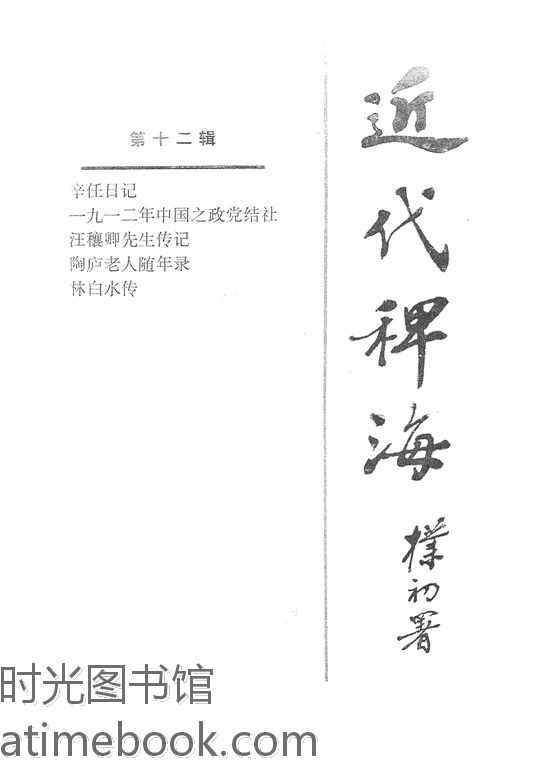 近代稗海
樸初署
第十二辑
辛任日记
一九一二年中国之政党结社
汪穰卿先生传记
陶庐老人随年录
林白水传
时光图书馆
atimebook.com